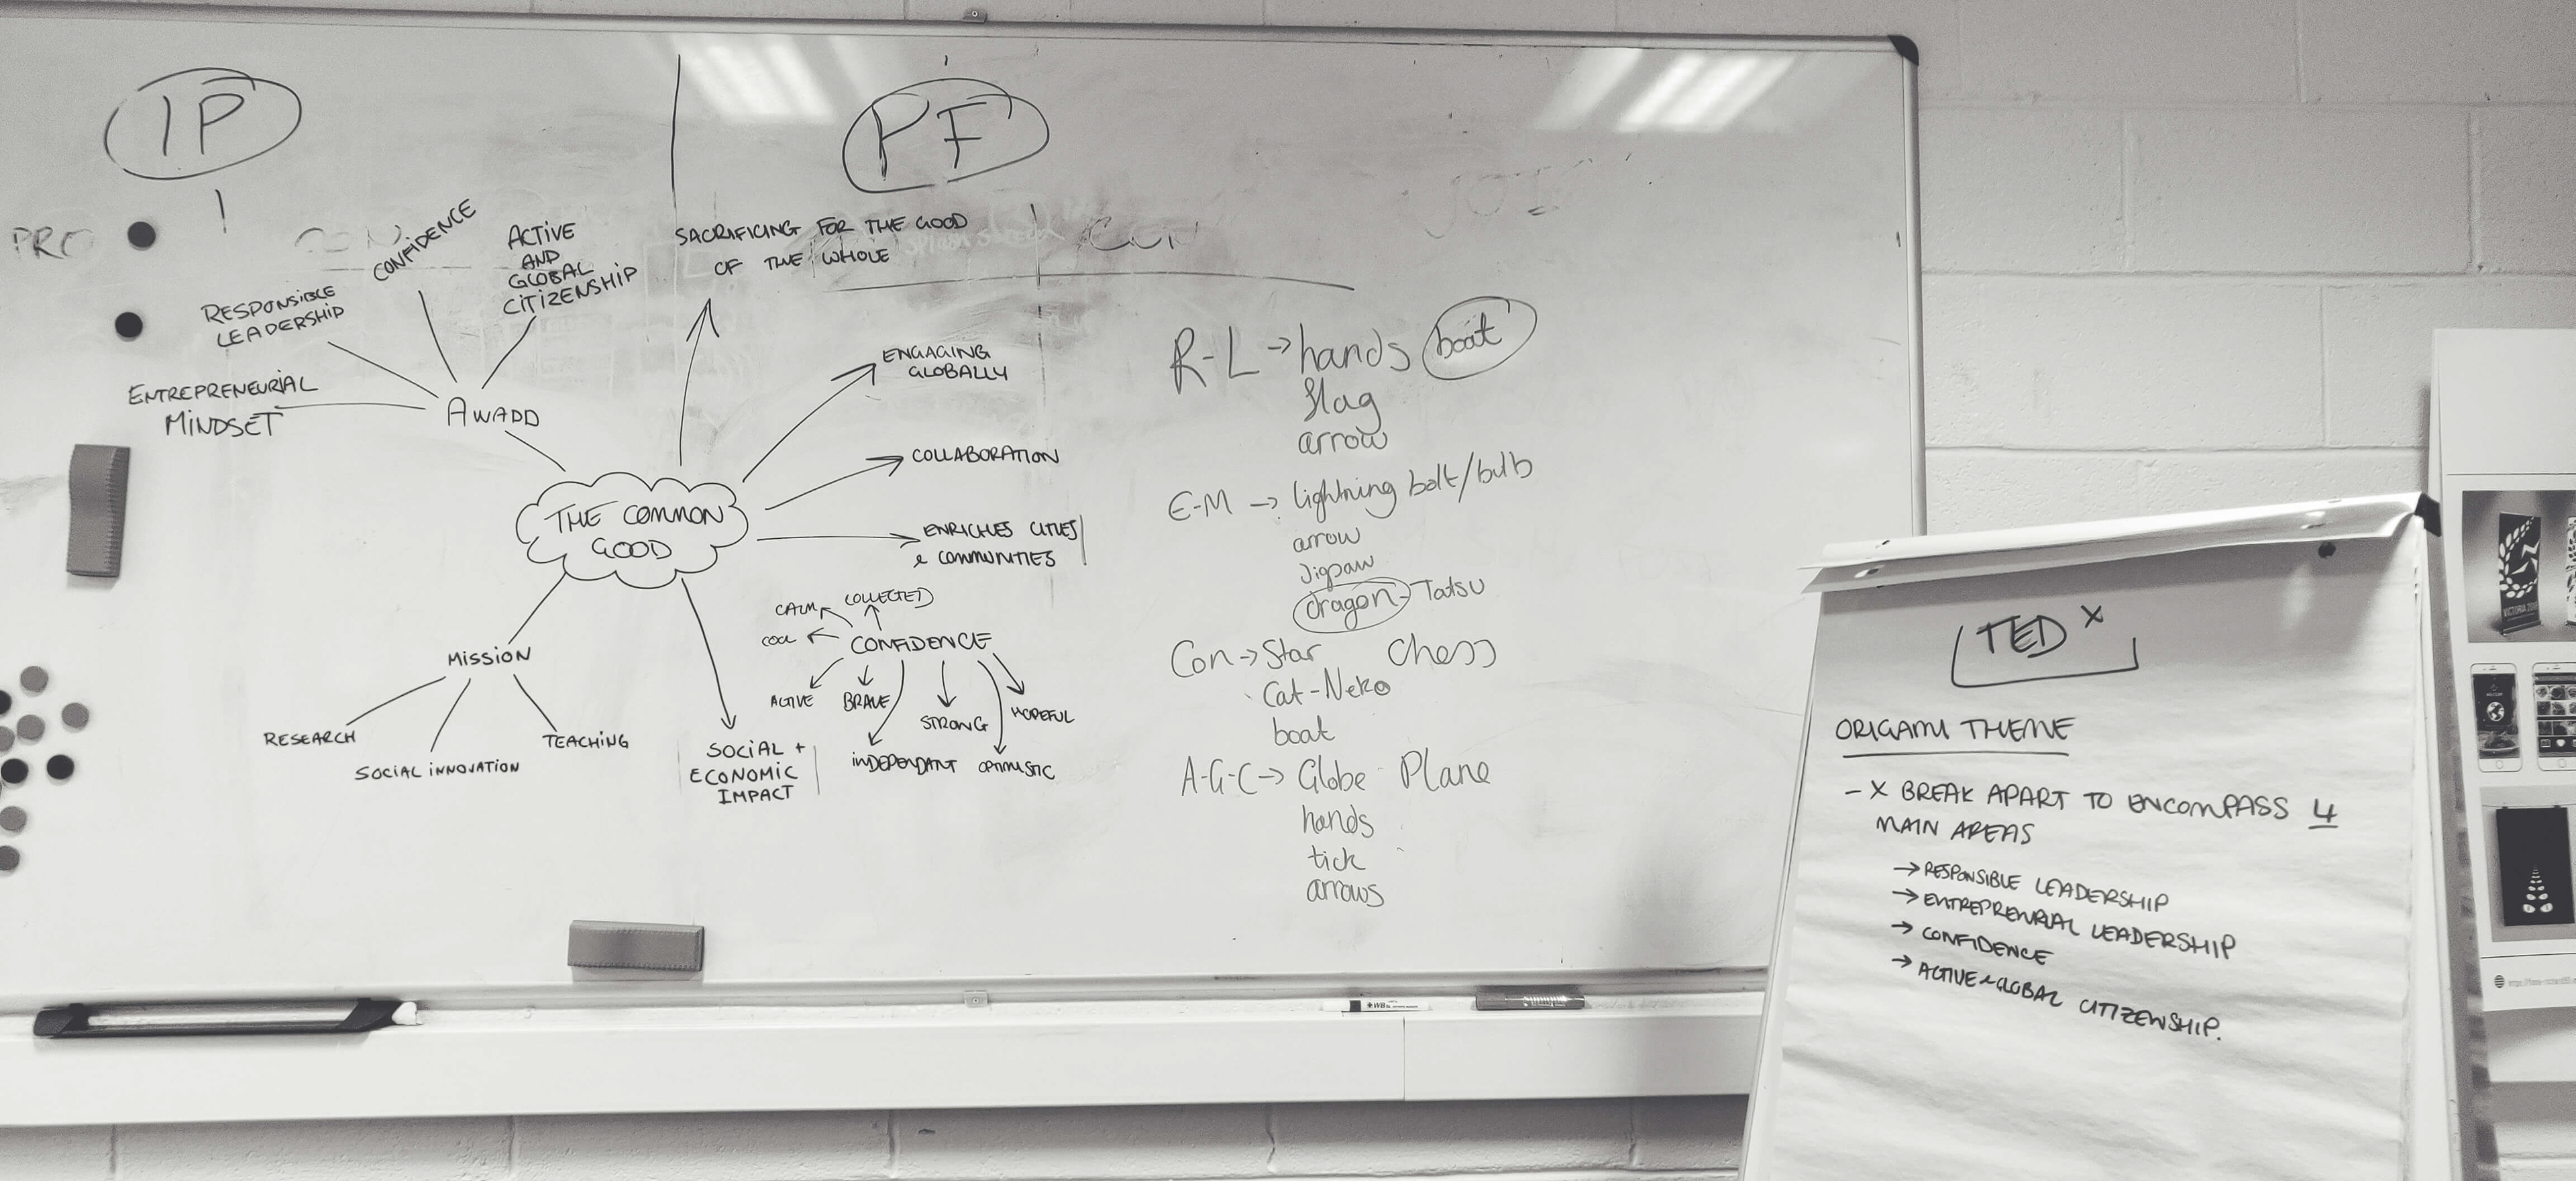 IP
PF
PRO
CON
CON
CONFIDENCE
ACTIVE
AND
GLOBAL
CITIZENSHIP
RESPONSIBLE
LEADERSHIP
ENTREPRENEURIAL
MINDSET
AWADD
SACRIFICING FOR THE GOOD
OF THE WHOLE
ENGAGING
GLOBALLY
COLLABORATION
THE COMMON
GOOD
ENRICHES CITIES
& COMMUNITIES
MISSION
RESEARCH
SOCIAL INNOVATION
TEACHING
CALM
COLLECTED
COOL
CONFIDENCE
ACTIVE
BRAVE
STRONG
HOPEFUL
INDEPENDANT
OPTIMISTIC
SOCIAL +
ECONOMIC
IMPACT
R-L → hands boat
flag
arrow
E-M → lightning bolt/bulb
arrow
Jigsaw
dragon - Tatsu
Con → Star Chess
Cat-Neko
boat
A-G-C → Globe Plane
hands
tick
arrows
TEDx
ORIGAMI THEME
- X BREAK APART TO ENCOMPASS 4
MAIN AREAS
→ RESPONSIBLE LEADERSHIP
→ ENTREPRENRIAL LEADERSHIP
→ CONFIDENCE
→ ACTIVE & GLOBAL CITIZENSHIP.